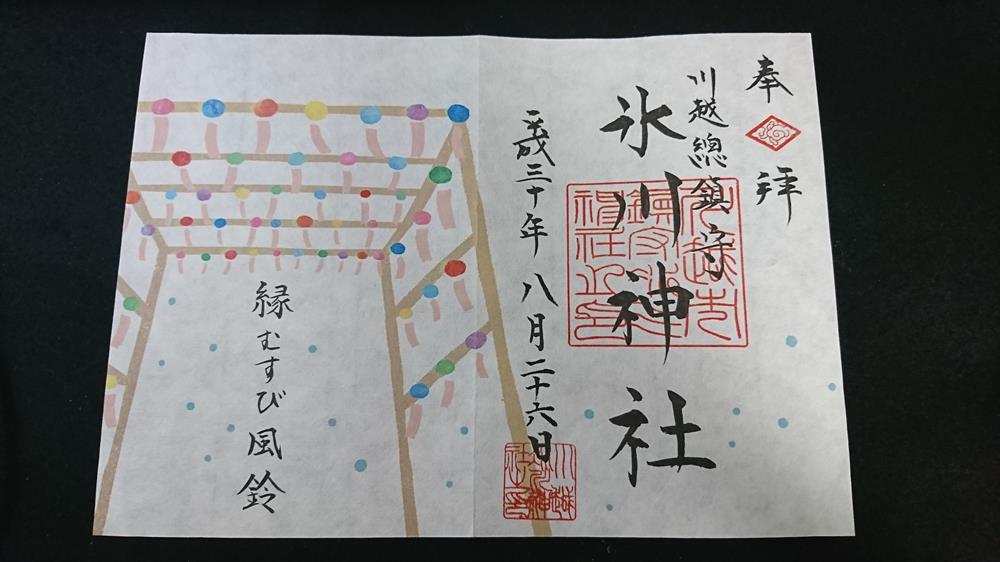 奉拝
川越總鎮守
氷川神社
平成三十年八月二十六日
縁むすび風鈴